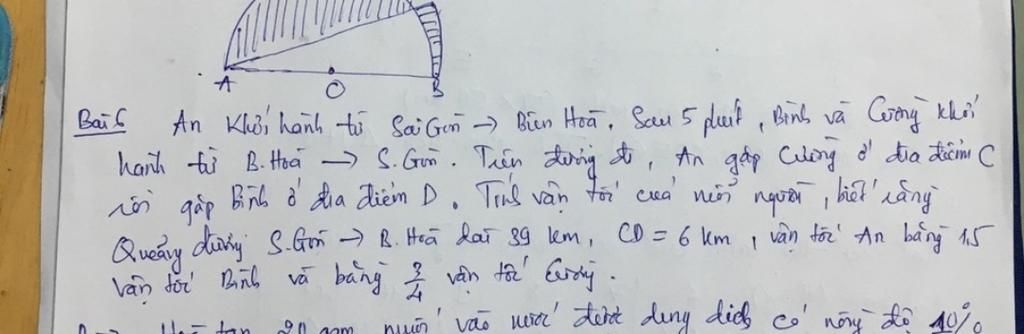 A
O
B
Bài 6 An khởi hành từ Sài Gòn → Biên Hoà. Sau 5 phút, Bình và Cường khởi
hành từ B. Hoà → S. Gòn. Trên đường đi, An gặp Cường ở địa điểm C
rồi gặp Bình ở địa điểm D. Tính vận tốc của mỗi người, biết rằng
Quãng đường S. Gòn → B. Hoà dài 39 km, CD = 6 km, vận tốc An bằng 1,5
vận tốc Bình và bằng 3/4 vận tốc Cường.
20 gam muối vào nước được dung dịch có nồng độ 10%